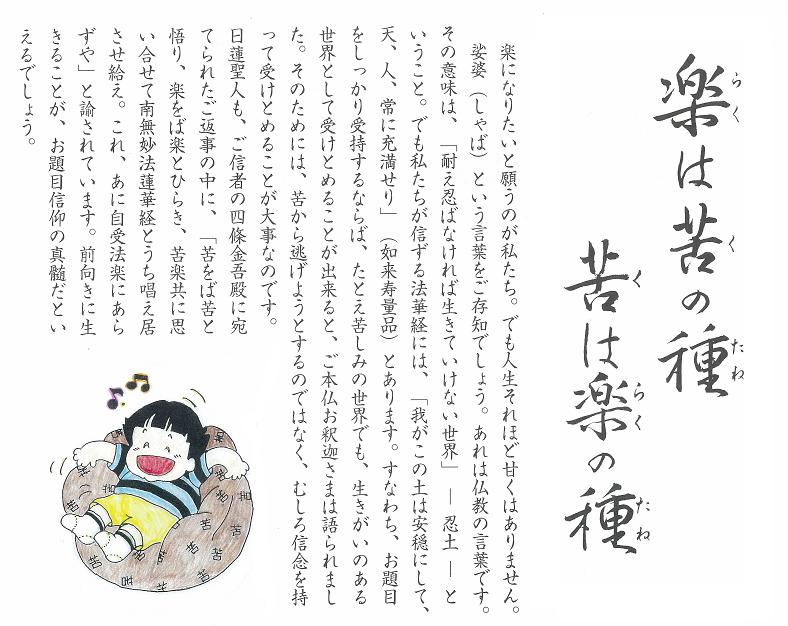 楽は苦の種
苦は楽の種
楽になりたいと願うのが私たち。でも人生それほど甘くはありません。
娑婆（しゃば）という言葉をご存知でしょう。あれは仏教の言葉です。
その意味は、「耐え忍ばなければ生きていけない世界」― 忍土 ― と
いうこと。でも私たちが信ずる法華経には、「我がこの土は安穏にして、
天、人、常に充満せり」（如来寿量品）とあります。すなわち、お題目
をしっかり受持するならば、たとえ苦しみの世界でも、生きがいのある
世界として受けとめることが出来ると、ご本仏お釈迦さまは語られまし
た。そのためには、苦から逃げようとするのではなく、むしろ信念を持
って受けとめることが大事なのです。
日蓮聖人も、ご信者の四條金吾殿に宛
てられたご返事の中に、「苦をば苦と
悟り、楽をば楽とひらき、苦楽共に思
い合せて南無妙法蓮華経とうち唱え居
させ給え。これ、あに自受法楽にあら
ずや」と諭されています。前向きに生
きることが、お題目信仰の真髄だとい
えるでしょう。
苦 苦 苦 苦 苦 苦 苦 苦 苦 苦 苦